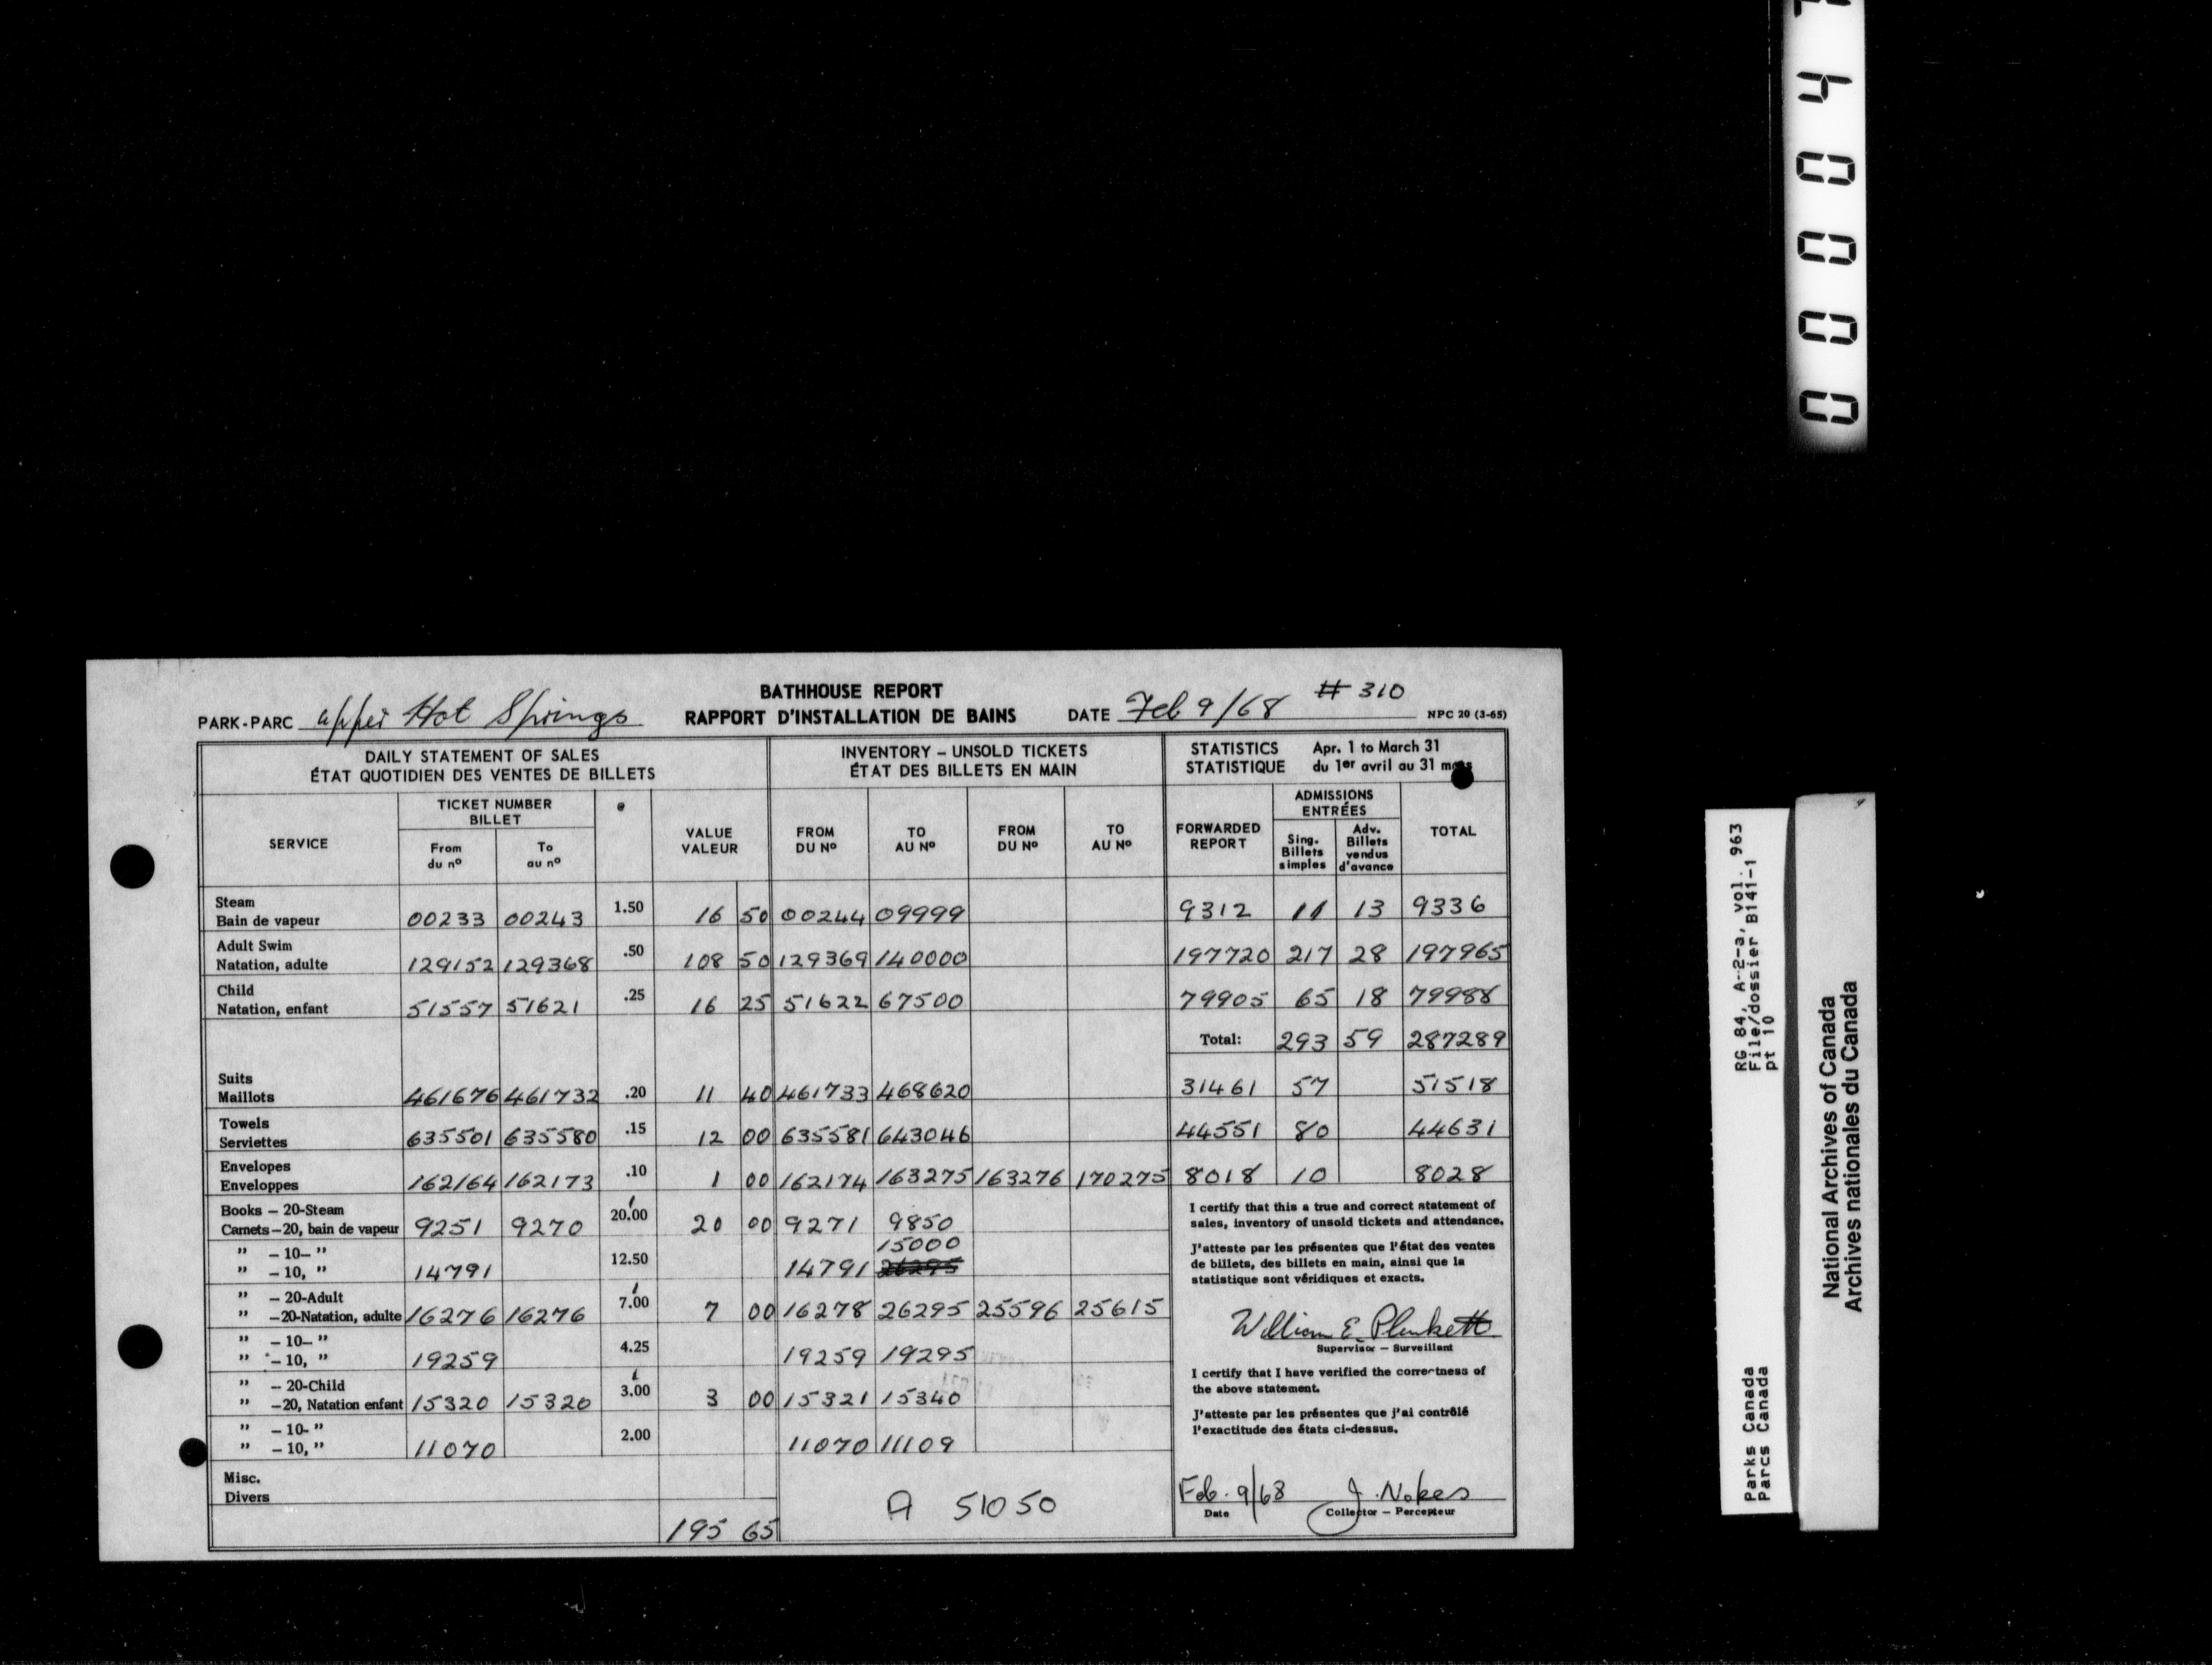 BATHHOUSE REPORT
# 310
PARK-PARC upper Hot Springs RAPPORT D'INSTALLATION DE BAINS DATE Feb 9/68 NPC 20 (3-65)
DAILY STATEMENT OF SALES
ÉTAT QUOTIDIEN DES VENTES DE BILLETS
INVENTORY – UNSOLD TICKETS
ÉTAT DES BILLETS EN MAIN
STATISTICS Apr. 1 to March 31
STATISTIQUE du 1er avril au 31 mars
SERVICE
TICKET NUMBER
BILLET
From
du nº
To
au nº
@
VALUE
VALEUR
FROM
DU Nº
TO
AU Nº
FROM
DU Nº
TO
AU Nº
FORWARDED
REPORT
ADMISSIONS
ENTRÉES
Sing.
Billets
simples
Adv.
Billets
vendus
d'avance
TOTAL
Steam
Bain de vapeur 00233 00243 1.50 16 50 00244 09999 9312 11 13 9336
Adult Swim
Natation, adulte 129152 129368 .50 108 50 129369 140000 197720 217 28 197965
Child
Natation, enfant 51557 51621 .25 16 25 51622 67500 79905 65 18 79988
Total: 293 59 287289
Suits
Maillots 461676 461732 .20 11 40 461733 468620 31461 57 51518
Towels
Serviettes 635501 635580 .15 12 00 635581 643046 44551 80 44631
Envelopes
Enveloppes 162164 162173 .10 1 00 162174 163275 163276 170275 8018 10 8028
Books – 20-Steam
Carnets–20, bain de vapeur 9251 9270 20.00 20 00 9271 9850
" – 10– " 15000
" – 10, " 14791 12.50 14791 26295
" – 20-Adult
" –20-Natation, adulte 16276 16276 7.00 7 00 16278 26295 25596 25615
" – 10– "
" – 10, " 19259 4.25 19259 19295
" – 20-Child
" –20, Natation enfant 15320 15320 3.00 3 00 15321 15340
" – 10- "
" – 10, " 11070 2.00 11070 11109
Misc.
Divers
195 65
A 51050
I certify that this a true and correct statement of
sales, inventory of unsold tickets and attendance.
J'atteste par les présentes que l'état des ventes
de billets, des billets en main, ainsi que la
statistique sont véridiques et exacts.
William E. Plunkett
Supervisor – Surveillant
I certify that I have verified the correctness of
the above statement.
J'atteste par les présentes que j'ai contrôlé
l'exactitude des états ci-dessus.
Feb. 9/68 J. Nokes
Date Collector – Percepteur
00004
RG 84, A-2-a, vol. 963
File/dossier B141-1
pt 10
Parks Canada
Parcs Canada
National Archives of Canada
Archives nationales du Canada